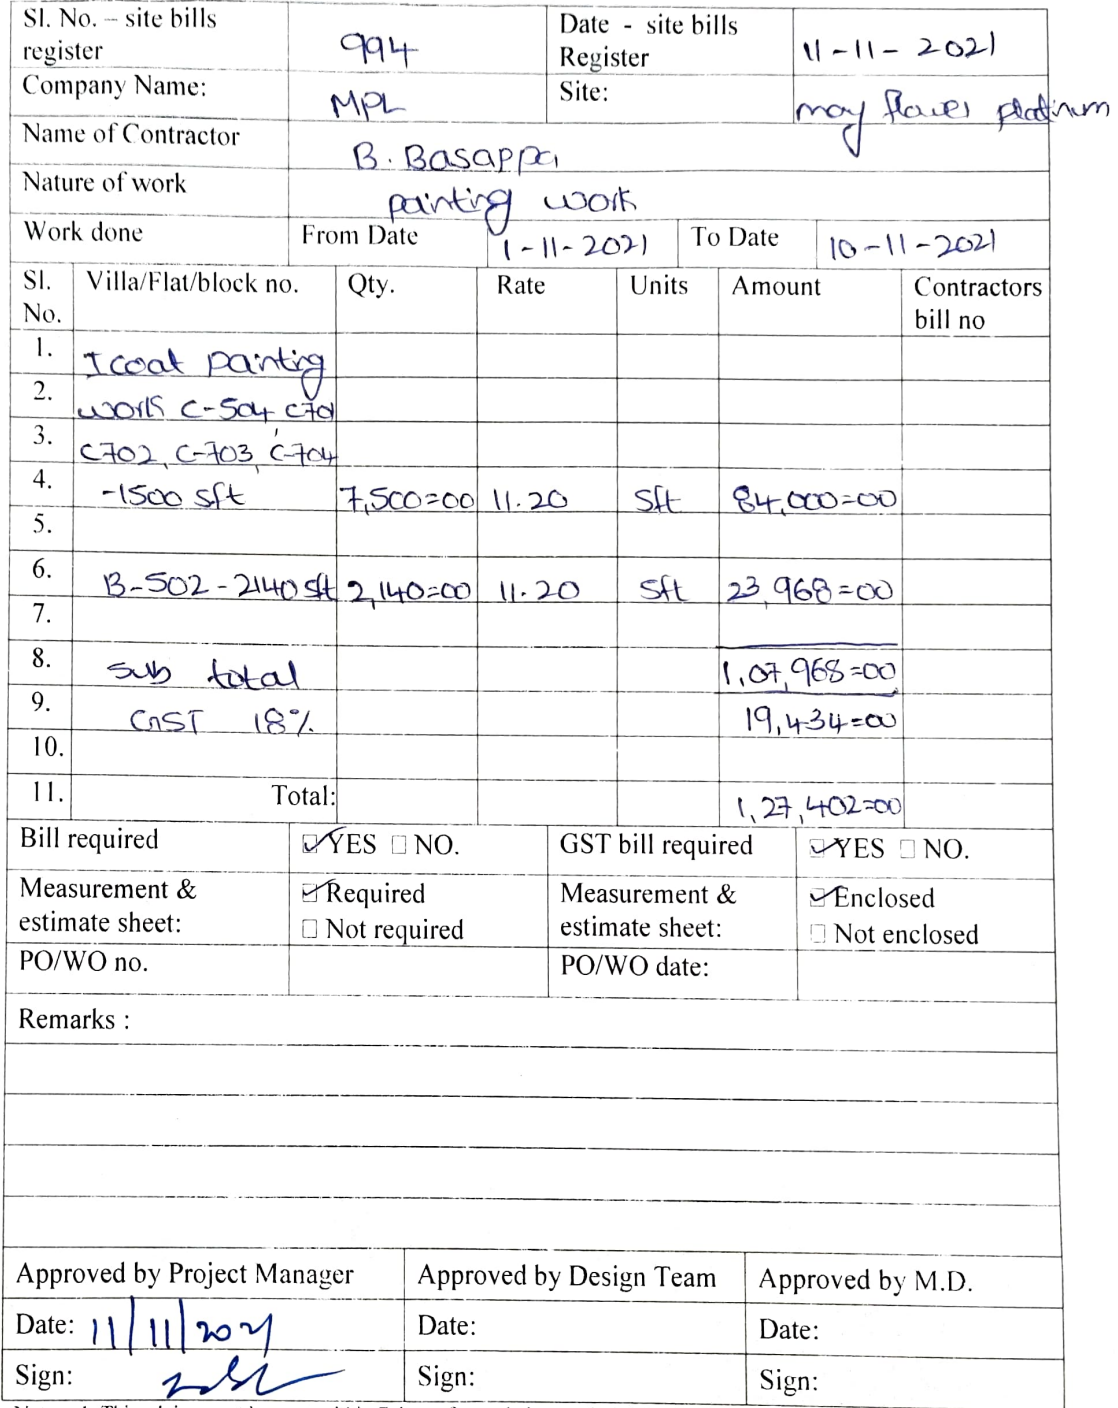 Sl. No. – site bills register 994 Date - site bills Register 11-11-2021
Company Name: MPL Site: may flower platinum
Name of Contractor B. Basappa
Nature of work painting work
Work done From Date 1-11-2021 To Date 10-11-2021
Sl. No. Villa/Flat/block no. Qty. Rate Units Amount Contractors bill no
1. I coat painting
2. work C-504, C701
3. C702, C-703, C-704
4. -1500 sft 7,500=00 11.20 Sft 84,000=00
5.
6. B-502-2140 sft 2,140=00 11.20 Sft 23,968=00
7.
8. sub total 1,07,968=00
9. GST 18% 19,434=00
10.
11. Total: 1,27,402=00
Bill required ☑YES ☐NO. GST bill required ☑YES ☐NO.
Measurement & estimate sheet: ☑Required ☐ Not required Measurement & estimate sheet: ☑Enclosed ☐ Not enclosed
PO/WO no. PO/WO date:
Remarks :
Approved by Project Manager Approved by Design Team Approved by M.D.
Date: 11/11/2021 Date: Date:
Sign: Sign: Sign: